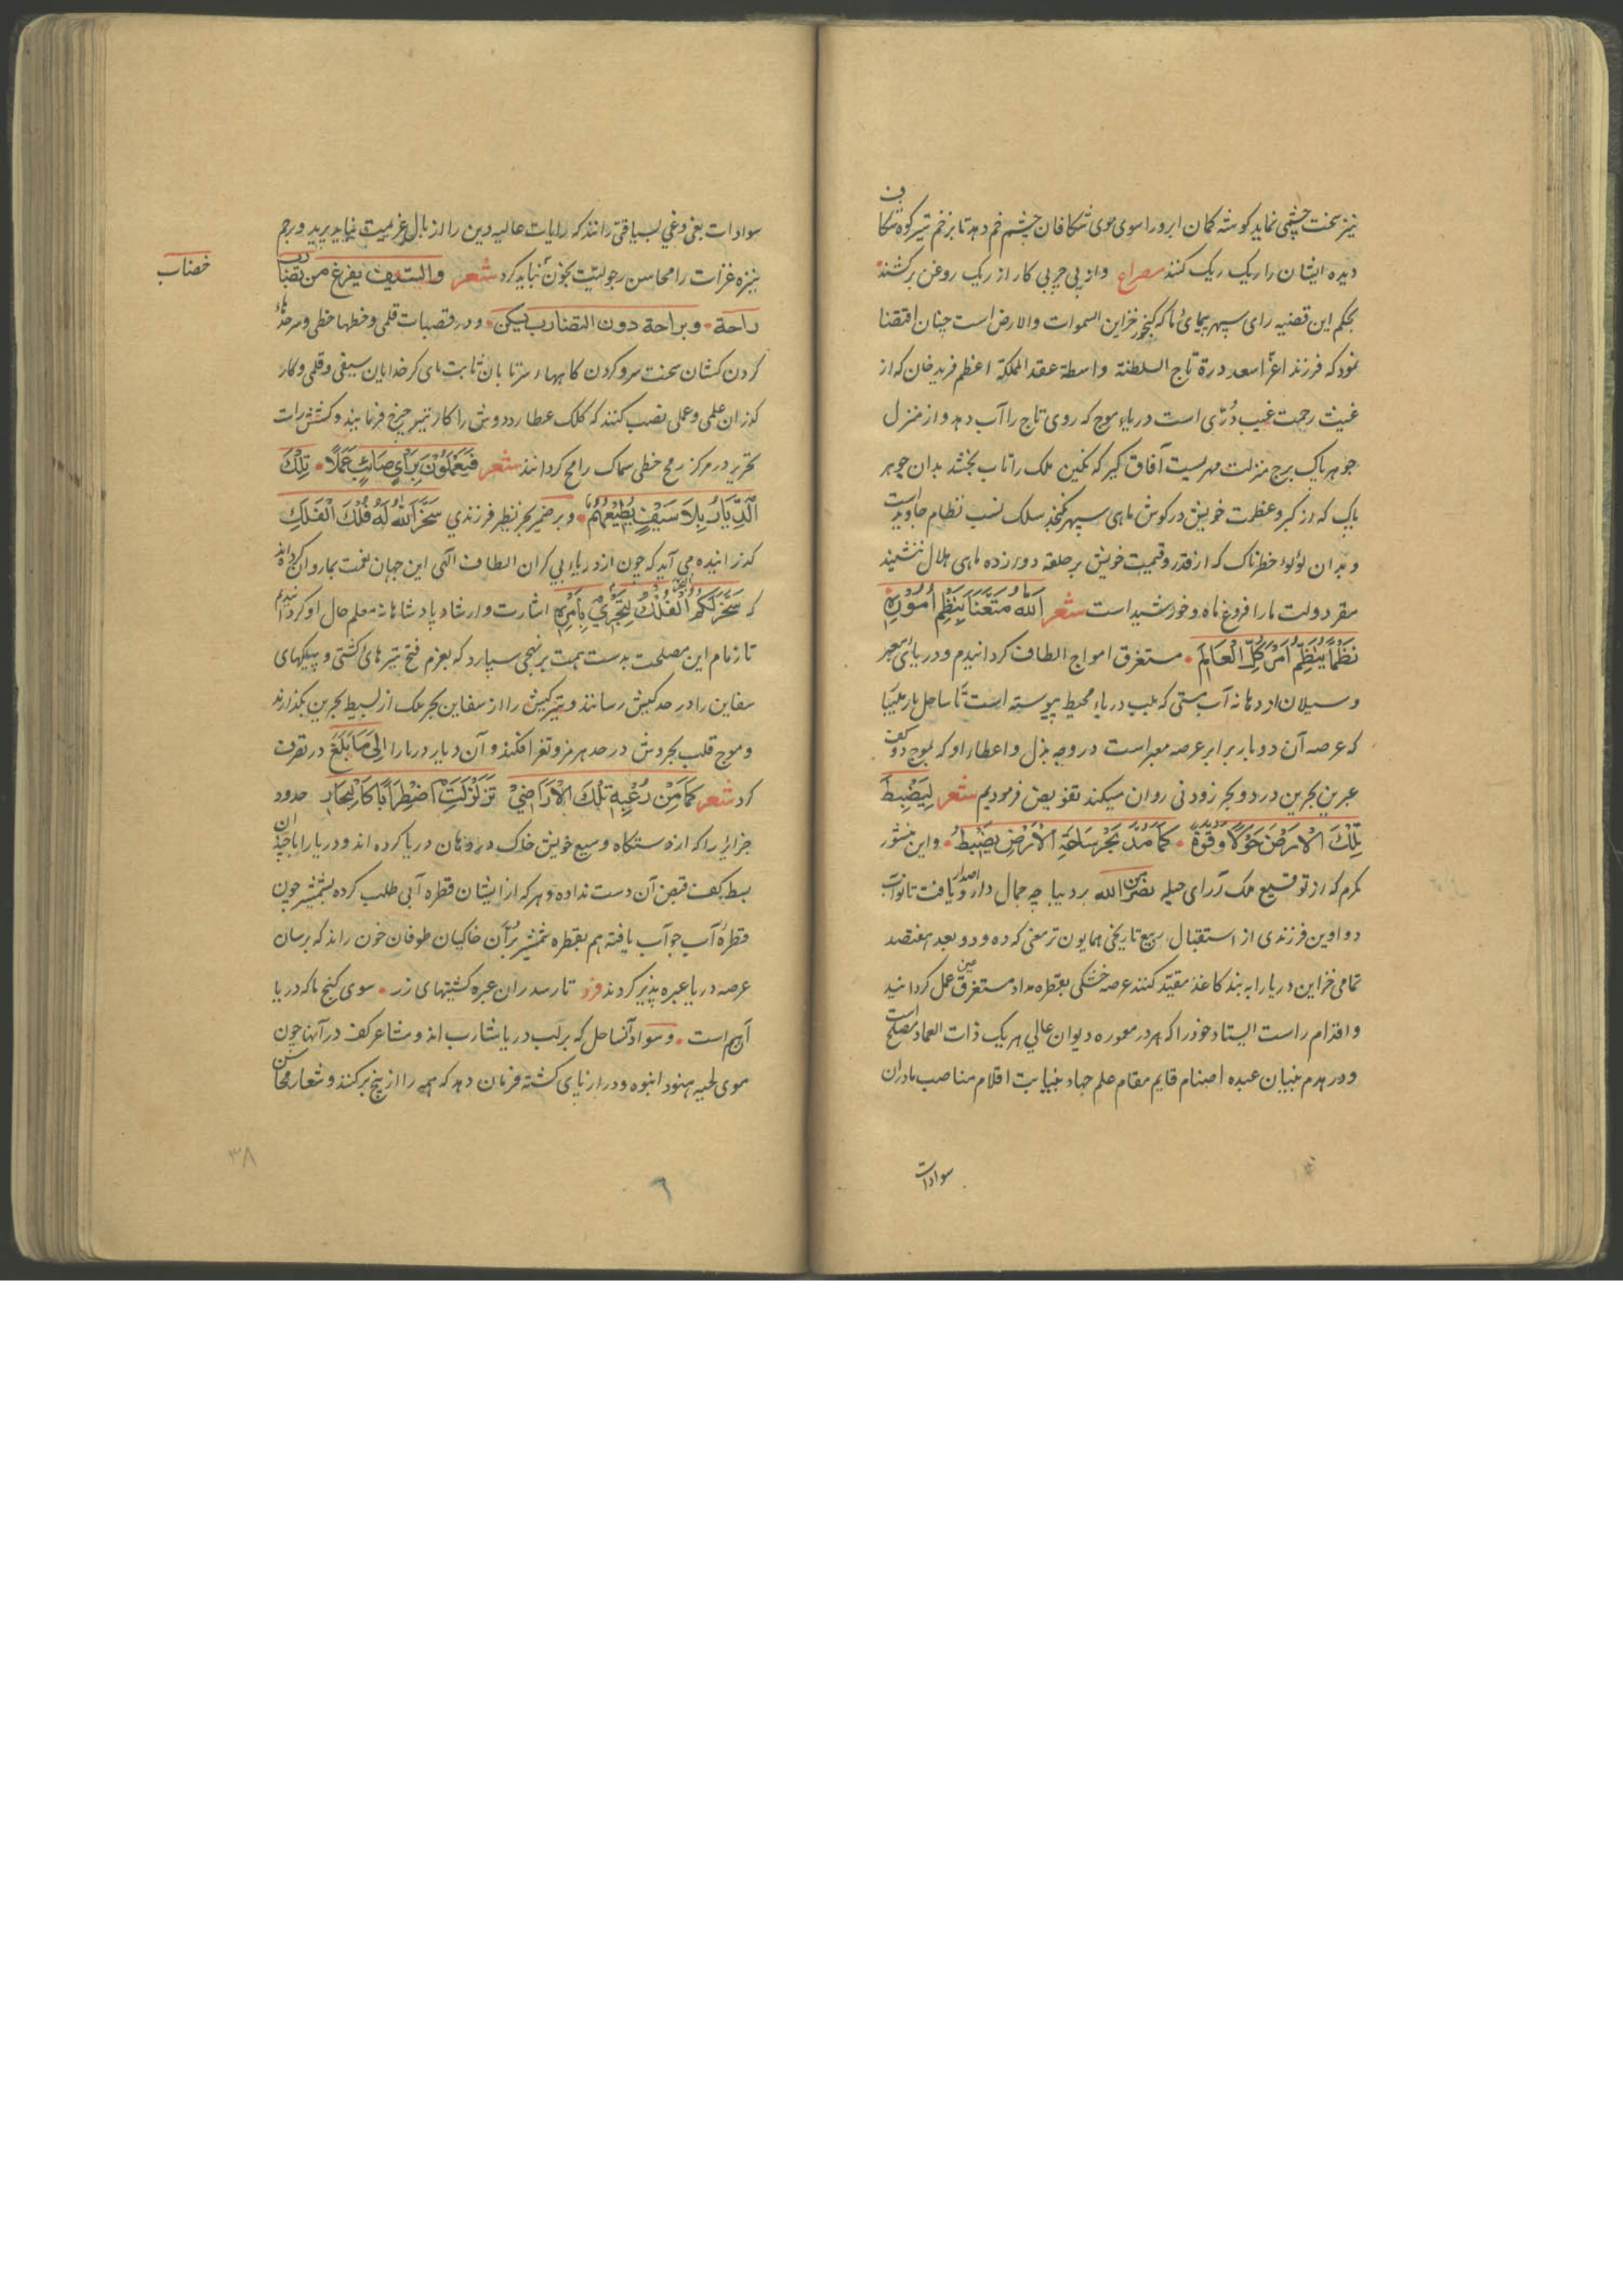 نیز سخت چشمی نماید گوشه کمان ابرو را سوی موی شکافان چشم خم دهد تا بزخم تیر کوه شکاف
دیده ایشان را ریک ریک کنند مصراع و از پی چربی کار از ریک روغن برکشند
بحکم این قضیه رای سپهر پیمای ما که گنجور خزاین السموات والارض است چنان اقتضا
نمود که فرزند اعز اسعد درة تاج السلطنة واسطة عقد المملکة اعظم فرید خان که از
غیث رحمت غیب درّی است دریا موج که روی تاج را آب دهد و از منزل
جوهر پاک برج منزلت مهریست آفاق گیر که نگین ملک را تاب بخشد بدان جوهر
پاک که از کبر و عظمت خویش در گوش ماهی سپهر نگنجد سلک نسب نظام جاوید است
و بدان لؤلوء خطرناک که از قدر و قیمت خویش بر حلقه دوازده ماهی هلال ننشیند
مقر دولت ما را فروغ ماه و خورشید است شعر الله متعنا بنظم اموره
نظما ینظم امر کل العالم مستغرق امواج الطاف گردانیدم و دریای معبر
و سیلان از دهانه آب بستی که بلب دریاء محیط پیوسته است تا ساحل بار ملیبا
که عرصه آن دوبار برابر عرصه معبر است در وجه بذل و اعطاء او که بموج دو کف
عبرین بحرین در دو بحر زودنی روان میکند تفویض فرمودیم شعر لیضبط
تلک الارض حولا وقوة کما مد بحر ساحة الارض یضبط و این منشور
مکرم که از توقیع ملک آرای حیله نصر من الله بر دیباچه جمال دارد اصدار یافت تا نواب
دواوین فرزندی از استقبال ربیع تاریخی همایون تر معنی که ده و دو بعد هفتصد
تمامی خزاین دریا را به بند کاغذ مقید کنند عرصه خشکی بقطره مداد مستغرق عین عمل گردانید
و اقدام راست ایستاد خود را که هر در معموره دیوان عالی هر یک ذات العماد مصلح است
و در هدم بنیان عبده اصنام قایم مقام علم جهاد بنیابت اقلام مناصب بادران
سوادات
سوادات بغی و غی بسیاقتی رانند که رایات عالیه دین را از بال عزیمت نباید برید و برجم
نیزه غزات را محاسن رجولیت بخون نباید کرد شعر والسیف یفرغ من تضارب
راحة وبراحة دون التضارب یسکن و در قصبات قلمی و خطها خطی و سرحدها
گردن کشان سخت سر و کردن گاهها سرتابان ثابت پای کرخدایان سیفی و قلمی و کار
گذران علمی و عملی نصب کنند که کلک عطارد دوش را کار تیر چرخ فرمایند و کشش رات
تحریر در مرکز رمح خطی سماک رامح گردانند شعر فیعملون برای صائب عملا تلک
الدیار بلا سیف یطیعهم و بر ضمیر بحر نظیر فرزندی سخر الله له فلک الفلک
گذرانیده می آید که چون از دریاء بی کران الطاف الهی این جهان نعمت بما روان گردانید
که سخر لکم الفلک لتجری بامره اشارت و ارشاد پادشاهانه معلم حال او گردانیدیم
تا زمام این مصلحت بدست همت بر نهجی سپارد که بعزم فتح تیر های کشتی و پیکهای
سفاین را در حد کیش رسانند و تیر کیش را از سفاین بحر ملک از بسیط بحرین بگذرانند
و موج قلب بحر وش در حد هرمز و تغر افکند و آن دیار دربار را الی ما بلغ در تصرف
آرد شعر کما من رعبه تلک الاراضی تزلزلت اضطرابا کالبحار حدود
جزایر را که از دستگاه وسیع خویش خاک در دهان دریا کرده اند و دریا را با چندان
بسط بکف قبض آن دست نداده و هر که از ایشان قطره آبی طلب کرده بشمشیر چون
قطره آب جواب یافته هم بقطره شمشیر بران خاکیان طوفان خون راند که برسان
عرصه دریا عبره پذیر گردند فرد تا رسد از آن عبره کشتیهای زر سوی گنج ما که دریا
آبیم است و سواد آن ساحل که بر لب دریا شارب اند و مشاعر کف در آنها چون
موی لحیه هنود انبوه و دراز نای گشته فرمان دهد که همه را از بیخ برکنند و شعار محاسن
خضاب
۳۸